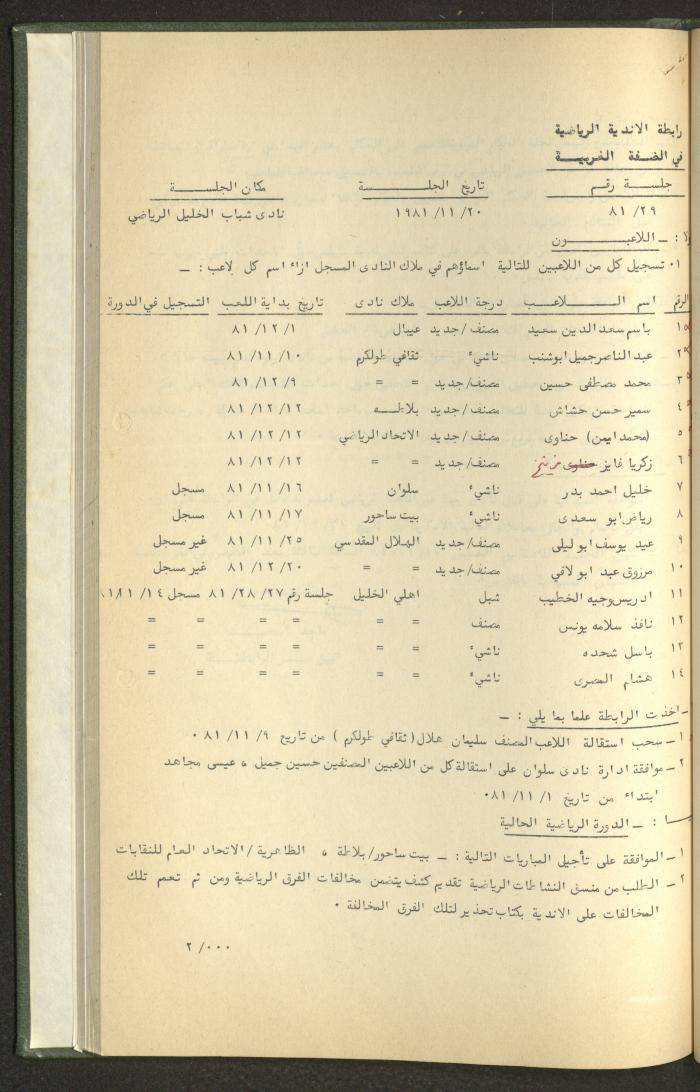 رابطة الاندية الرياضية
في الضفة الغربيــة
جلســة رقــم    تاريخ الجلــــــسة    مكان الجلســـــة
٨١/٢٩    ١٩٨١/١١/٢٠    نادى شباب الخليل الرياضي
لا : ــ اللاعبــــــــون
٠١ تسجيل كل من اللاعبين للتالية اسماؤهم في ملاك النادى المسجل ازاء اسم كل لاعب : ــ
الرقم    اسم الـــــلاعــــب    درجة اللاعب    ملاك نادى    تاريخ بداية اللعب    التسجيل في الدورة
١    باسم سعد الدين سعيد    مصنف/جديد    عيبال    ٨١/١٢/١
٢    عبد الناصر جميل ابوشنب    ناشيء    ثقافي طولكرم    ٨١/١١/١٠
٣    محمد مصطفى حسين    مصنف/جديد    =    =    ٨١/١٢/٩
٤    سمير حسن حشاش    مصنف/جديد    بلاطــه    ٨١/١٢/١٢
٥    (محمد ايمن) حناوى    مصنف/جديد    الاتحاد الرياضي    ٨١/١٢/١٢
٦    زكريا فايز حناوى    مصنف/جديد    =    =    ٨١/١٢/١٢
٧    خليل احمد بدر    ناشيء    سلوان    ٨١/١١/١٦    مسجل
٨    رياض ابو سعدى    ناشيء    بيت ساحور    ٨١/١١/١٧    مسجل
٩    عيد يوسف ابو ليلى    مصنف/جديد    الهلال المقدسي    ٨١/١١/٢٥    غير مسجل
١٠    مرزوق عبد ابو لافي    مصنف/جديد    =    =    ٨١/١٢/٢٠    غير مسجل
١١    ادريس وجيه الخطيب    شبل    اهلي الخليل    جلسة رقم ٢٧/٢٨/٨١    مسجل ٨١/١١/١٤
١٢    نافذ سلامه يونس    مصنف    =    =    =    =    =    =
١٣    باسل شحده    ناشيء    =    =    =    =    =    =
١٤    هشام المصرى    ناشيء    =    =    =    =    =    =
ـ اخذت الرابطة علما بما يلي : ــ
١ــ سحب استقالة اللاعب المصنف سليمان هلال (ثقافي طولكرم ) من تاريخ ٨١/١١/٩ ٠
٢ــ موافقة ادارة نادى سلوان على استقالة كل من اللاعبين المصنفين حسين جميل ، عيسى مجاهد
ابتداء من تاريخ ٨١/١١/١٠
ـا : ــ الدورة الرياضية الحالية
١ــ الموافقة على تأجيل المباريات التالية : ــ بيت ساحور/بلاطة ، الظاهرية/الاتحاد العام للنقابات
٢ــ الطلب من منسق النشاطات الرياضية تقديم كشف يتضمن مخالفات الفرق الرياضية ومن ثم تعمم تلك
المخالفات على الاندية بكتاب تحذير لتلك الفرق المخالفة ٠
٢/٠٠٠